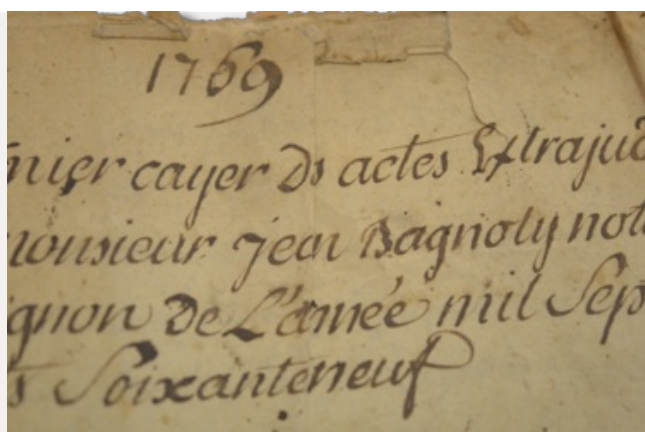 1769
nier cayer ds actes Extrajud
monsieur jean Bagnoly not
ignon de L'année mil Sep
ts Soixanteneuf